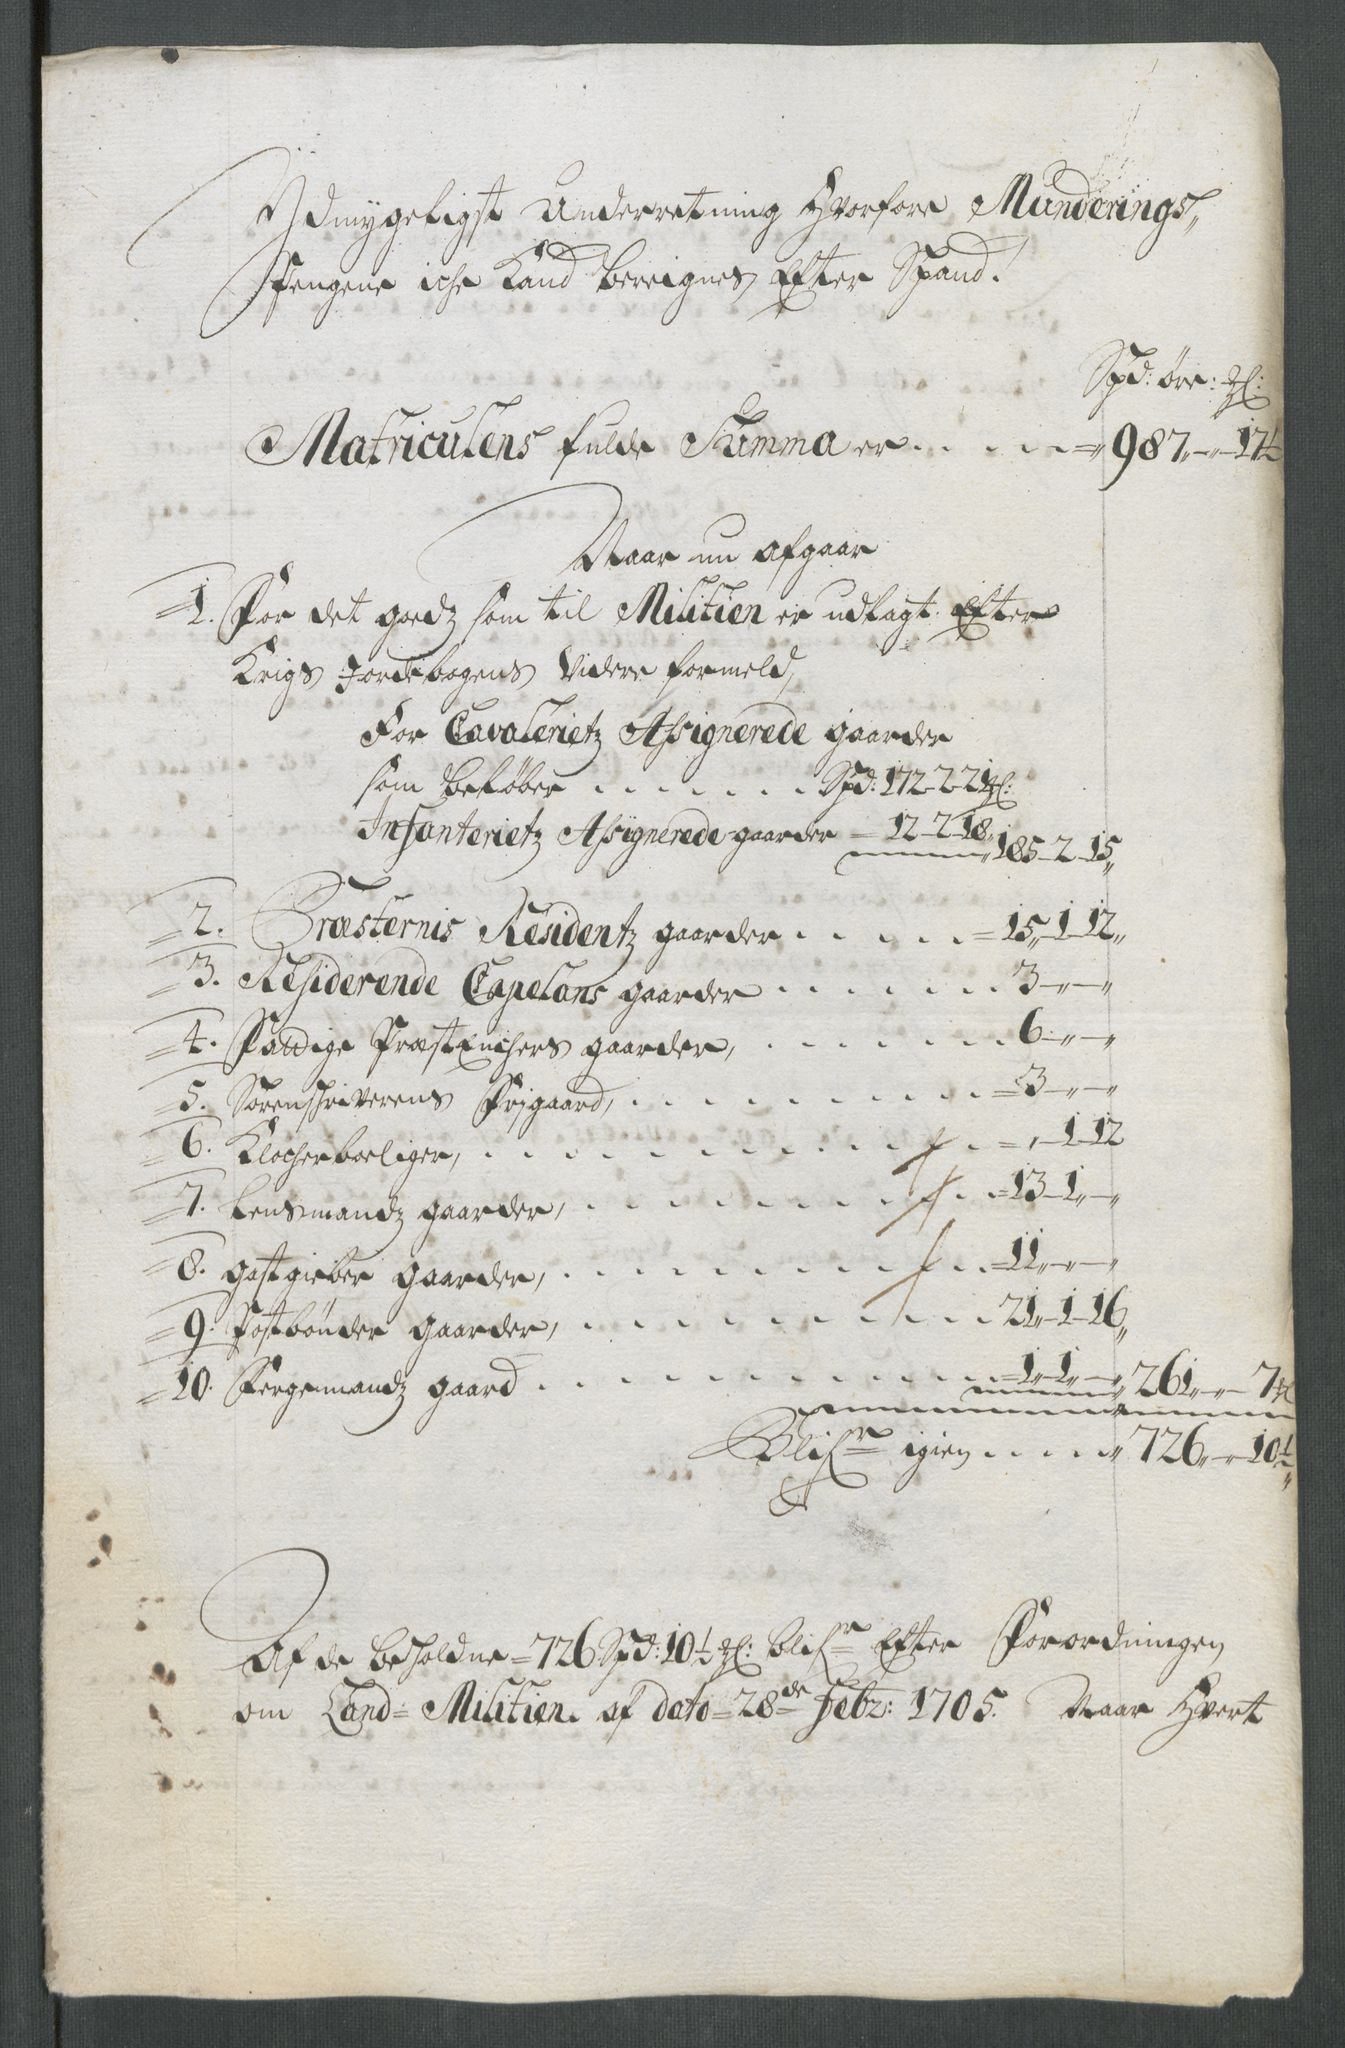 Ydmygeligst Underretning Hvorfore Munderings
Pengene iche Kand bereignes Efter Spand.
Spd: öre: ʒl:
Matriculens fulde Summa er . . . . . = 987 „ - „ - 17½
Naar nu afgaar
1. For det goedz som til Militien er udlagt Efter
Krigs Jordebogens Videre formeld,
For Cavalerietz Assignerede gaarder
som beløber . . . . . . . Spd: 172-2-21 ʒl:
Infanterietz Assignerede gaarder - 12-2-18„
185-2-15„
2. Præsternis Residentz gaarder . . . . . = 15„-1-12„
3. Residerende Capelans gaarder . . . . . . . 3-„-„
4. Fattige PræstEnchers gaarder, . . . . . . . 6-„-„
5. Sorenschriverens Frjgaard, . . . . . . . . = 3-„-„
6. Klocherboeliger, . . . . . . . . . . = „-1-12
7. Lensmandz gaarder, . . . . . . . . . = 13-1„-„
8. gastgieber gaarder, . . . . . . . . . = 11„-„-„
9. Postbönder gaarder, . . . . . . . . . 21„-1-16„
10. Fergemandz gaard . . . . . . . . . . . = 1„-1„-„ 261„-„-7 ʒl
Blifr igien . . . . . „ 726„-„-10½„
Af de beholdne = 726 Spd: 10½ ʒl: blifr Efter Forordningen
om Land= Militien af dato = 28de Febr: 1705. Naar Hvert